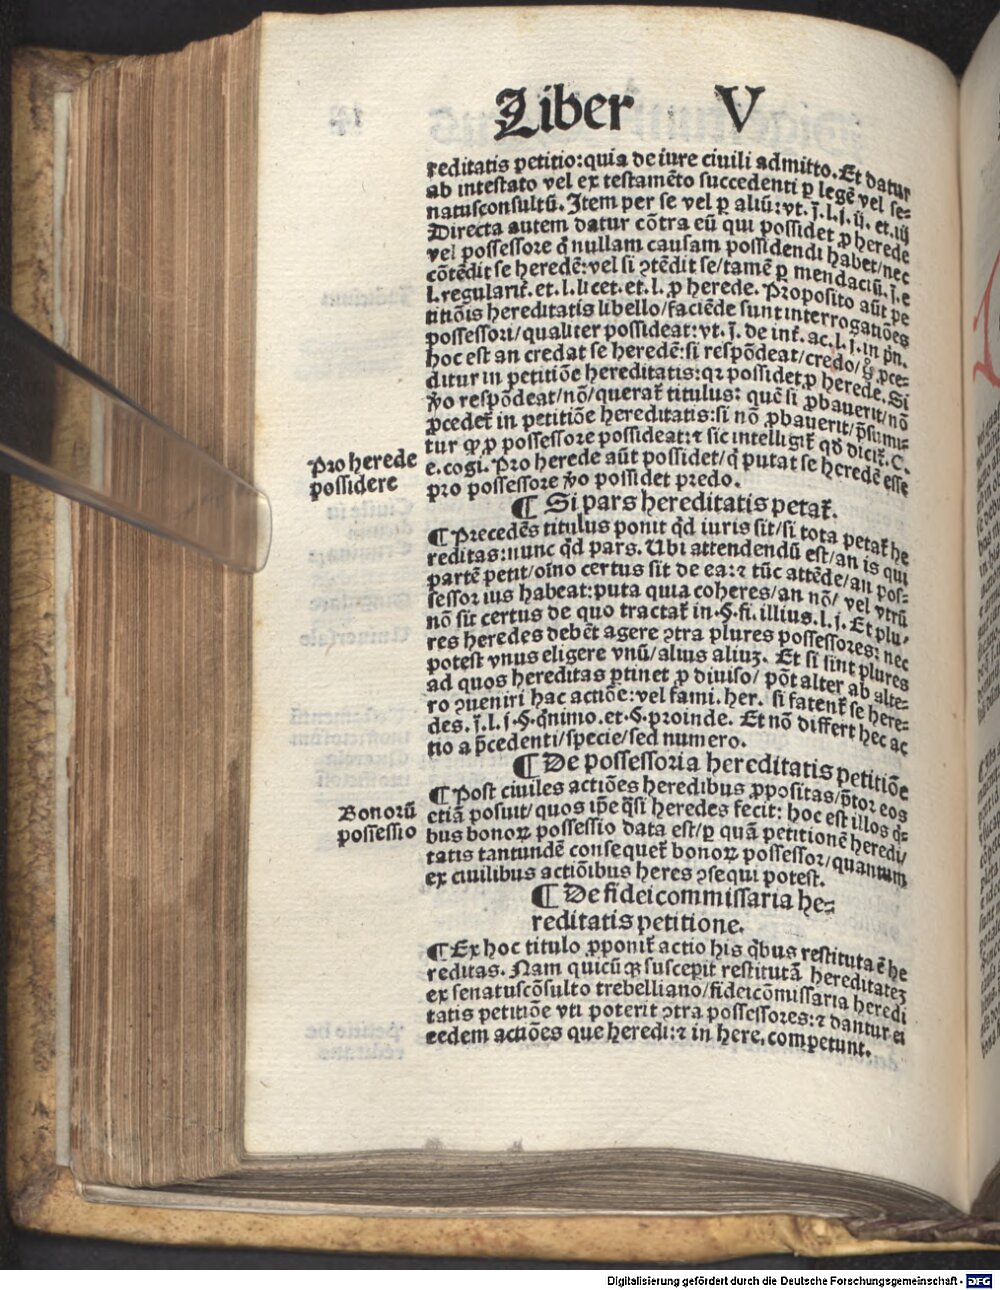 Liber V
reditatis petitio: quia de iure ciuili admitto. Et datur
ab intestato vel ex testamēto succedenti ꝑ legē vel se⸗
natusconsultū. Item per se vel ꝑ aliū: vt. j̄. l. j. ij. et. iij
Directa autem datur cōtra eū qui possidet ꝓ herede
vel possessore q̄ nullam causam possidendi habet/nec
cōtēdit se heredē: vel si ꝯtēdit se/tamē ꝑ mendaciū. j̄. e
l. regularit᷑. et. l. licet. et. l. ꝓ herede. Proposito aūt pe
titiōis hereditatis libello/faciēde sunt interrogatiōes
possessori/qualiter possideat: vt. j̄. de int᷑. ac. l. j. in pn̄.
hoc est an credat se heredē: si respōdeat/credo/ꝓce⸗
ditur in petitiōe hereditatis: qꝛ possidet ꝓ herede. Si
ꝟo respōdeat/nō/querat᷑ titulus: quē si ꝓbauerit/nō
ꝓcedet᷑ in petitiōe hereditatis: si nō ꝓbauerit/p̄sumi⸗
tur ꝙ ꝓ possessore possideat: ⁊ sic intelligit᷑ qd̄ dicit᷑. C.
e. cogi. Pro herede aūt possidet/q̄ putat se heredē esse
pro possessore ꝟo possidet predo.
Pro herede
possidere
¶ Si pars hereditatis petat᷑.
¶ Precedēs titulus ponit qd̄ iuris sit/si tota petat᷑ he
reditas: nunc qd̄ pars. Ubi attendendū est/an is qui
partē petit/oīno certus sit de ea: ⁊ tūc attēde/an pos⸗
sessor ius habeat: puta quia coheres/an nō/ vel vtrū
nō sit certus de quo tractat᷑ in. §. fi. illius. l. j. Et plu⸗
res heredes debēt agere ꝯtra plures possessores: nec
potest vnus eligere vnū/alius aliuꝫ. Et si sint plures
ad quos hereditas ꝑtinet ꝓ diuiso/ pōt alter ab alte⸗
ro ꝯueniri hac actiōe: vel fami. her. si fatent᷑ se here⸗
des. j̄. l. j. §. q̄nimo. et. §. proinde. Et nō differt hec ac
tio a p̄cedenti/specie/sed numero.
¶ De possessoria hereditatis petitiōe
¶ Post ciuiles actiōes heredibus ꝓpositas/p̄tor eos
etiā posuit/quos ip̄e q̄si heredes fecit: hoc est illos q̄⸗
bus bonoꝝ possessio data est/ꝑ quā petitionē heredi/
tatis tantundē consequet᷑ bonoꝝ possessor/quantum
ex ciuilibus actiōibus heres ꝯsequi potest.
Bonorū
possessio
¶ De fideicommissaria he⸗
reditatis petitione.
¶ Ex hoc titulo ꝓponit᷑ actio his q̄bus restituta ē he
reditas. Nam quicūqꝫ susceꝑit restitutā hereditateꝫ
ex senatuscōsulto trebelliano/fideicōmissaria heredi
tatis petitiōe vti poterit ꝯtra possessores: ⁊ dantur ei
eedem actiōes que heredi: ⁊ in here. competunt.
Digitalisierung gefördert durch die Deutsche Forschungsgemeinschaft - DFG